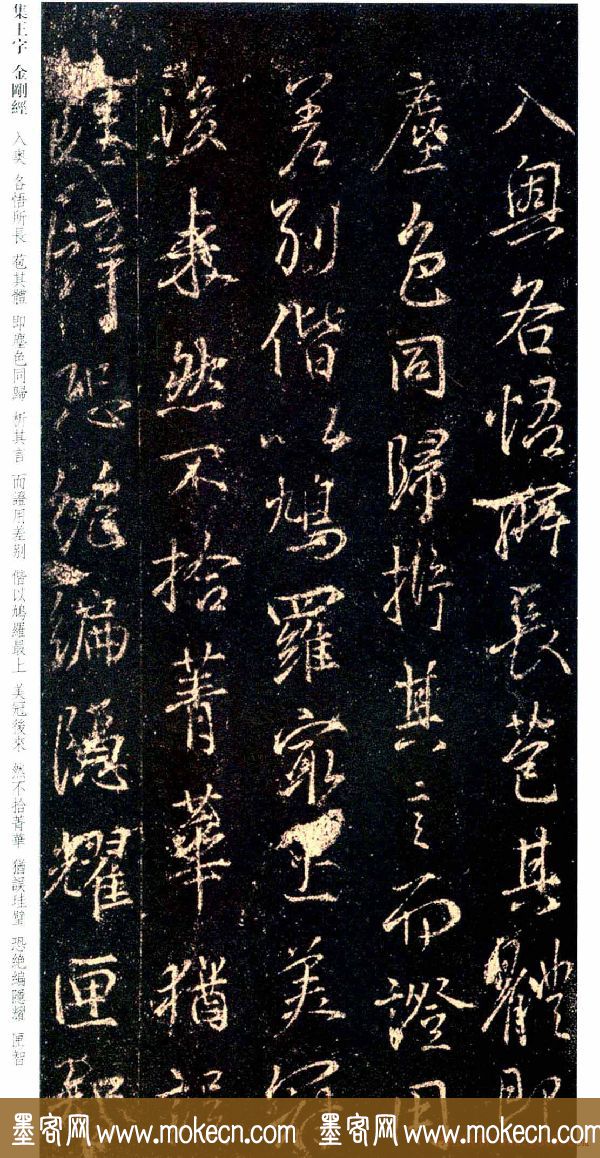 集王字 金剛經 入奥 各悟所長 苞其體 即塵色同歸 析其言 而證用差别 偕以鳩羅最上 美冠後來 然不捨菁華 猶誤珪璧 恐絶編隱耀 匣智
入奥各悟所長苞其體即
塵色同歸析其言而證用
差别偕以鳩羅最上美冠
後來然不捨菁華猶誤
珪璧恐絶編隱耀匣智
墨客网 www.mokecn.com 墨客网 www.mokecn.com